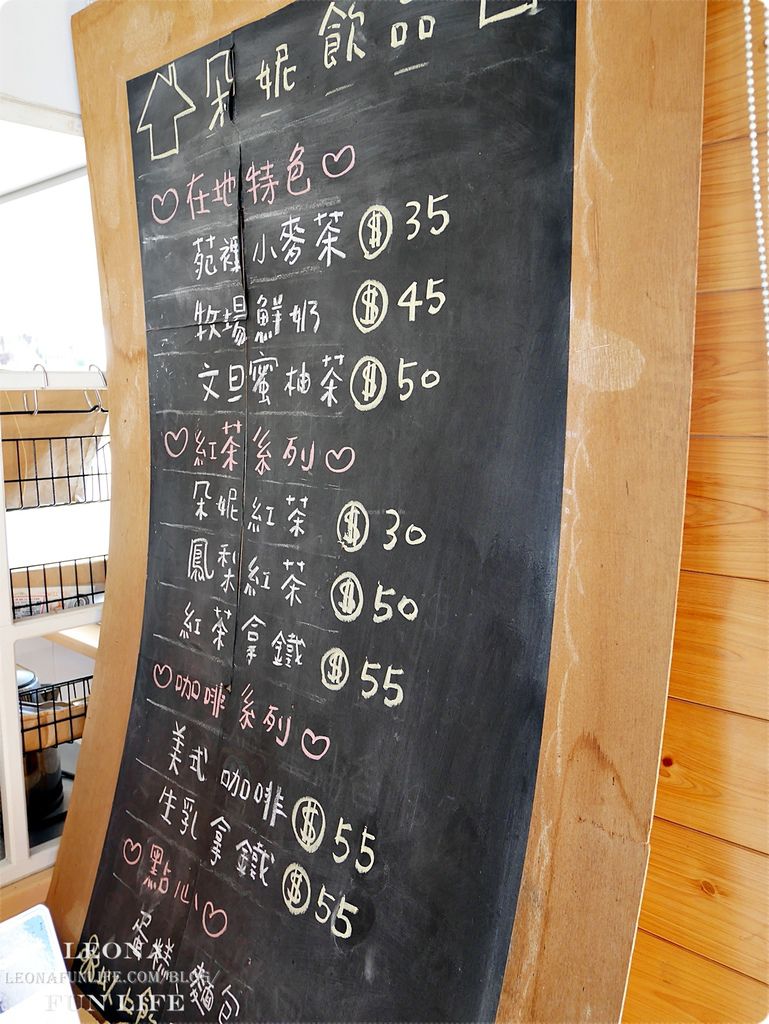 朵妮飲品
在地特色
苑裡小麥茶 $ 35
牧場鮮奶 $ 45
文旦蜜柚茶 $ 50
紅茶系列
朵妮紅茶 $ 30
鳳梨紅茶 $ 50
紅茶拿鐵 $ 55
咖啡系列
美式咖啡 $ 55
生乳拿鐵 $ 55
點心
蛋糕、麵包
LEONA
LEONAFUNLIFE.COM/BLOG/
FUN LIFE